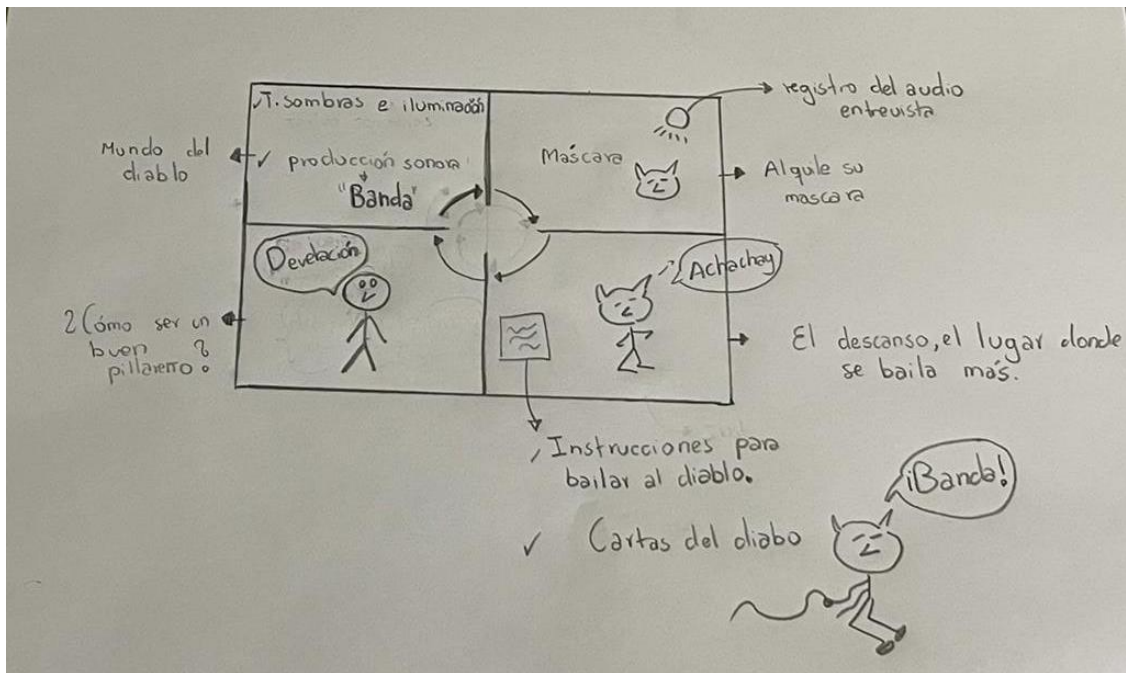 ✓T. sombras e iluminación
✓ producción sonora
"Banda"
Mundo del
diablo
Máscara
registro del audio
entrevista
Alquile su
mascara
Develación
¿Cómo ser un
buen
pillarerro?
Achachay
El descanso, el lugar donde
se baila más.
Instrucciones para
bailar al diablo.
✓ Cartas del diabo
¡Banda!